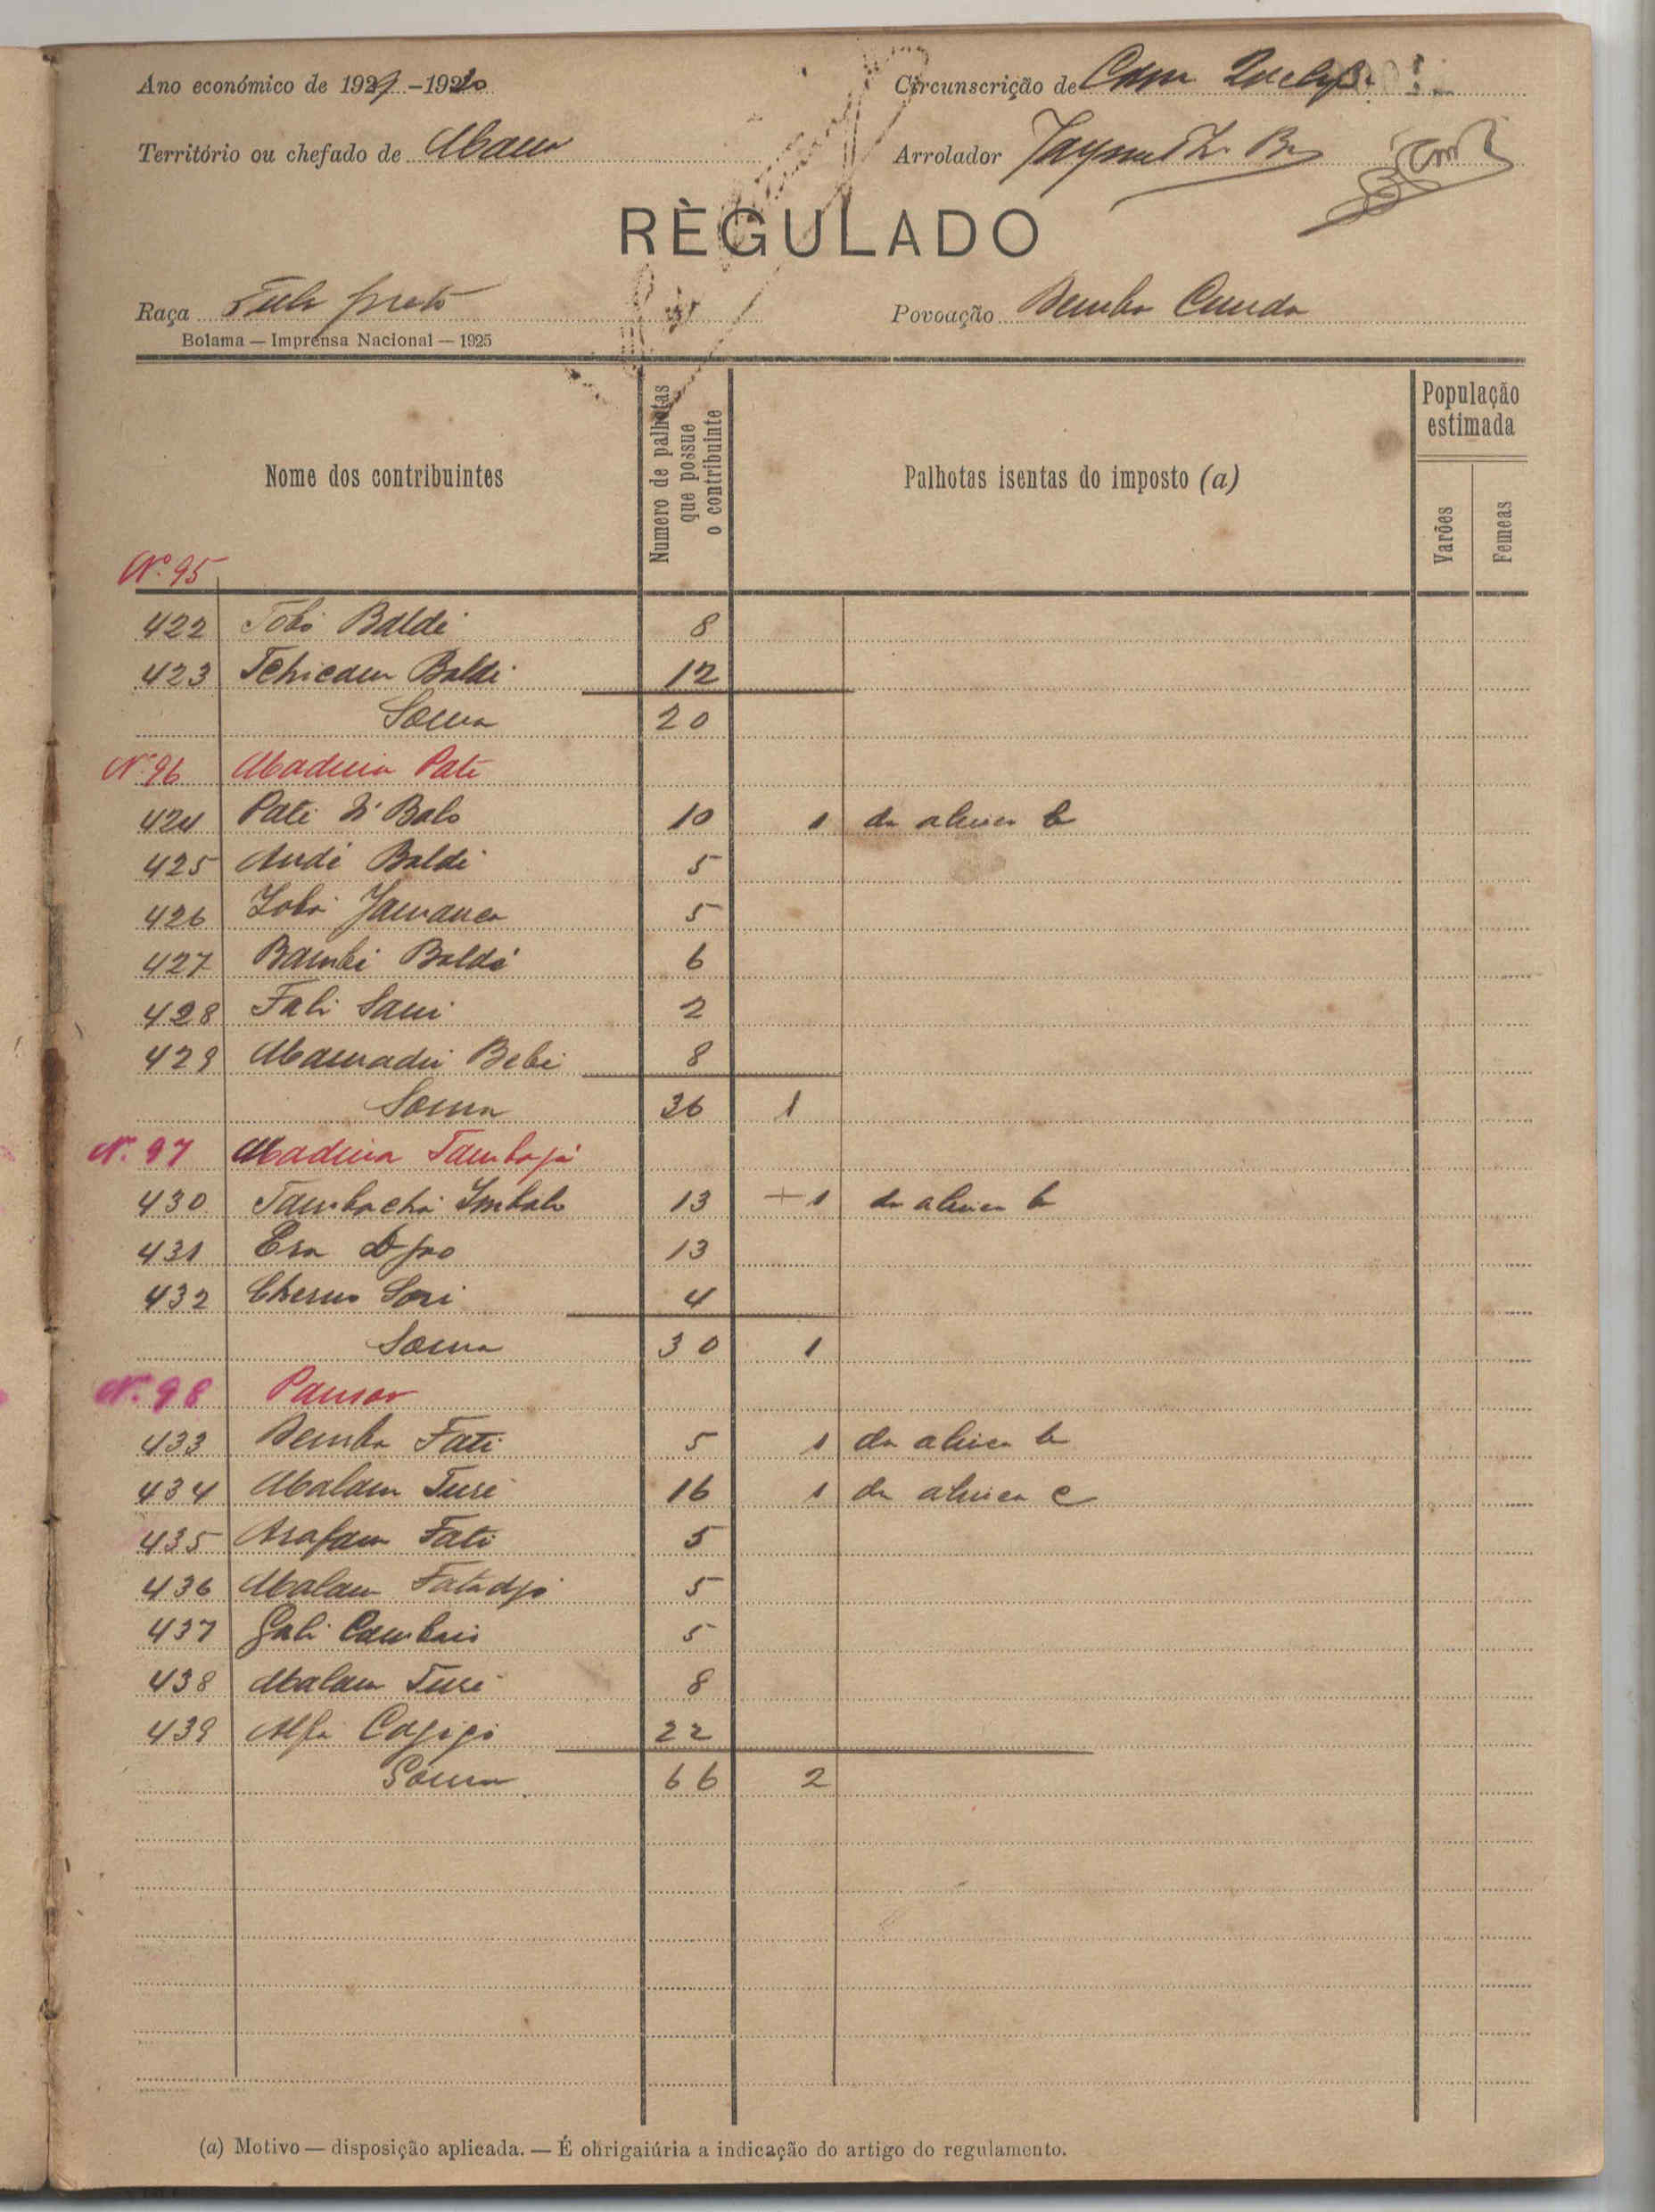 Ano económico de 1929-1930
Circunscrição de
Território ou chefado de
Arrolador
RÈGULADO
Raça Fula preto
Povoação Demba Cunda
Bolama — Imprensa Nacional — 1925
Nome dos contribuintes
Numero de palhotas que possue o contribuinte
Palhotas isentas do imposto (a)
População estimada
Varões
Femeas
Nº 95
422 Baldé 8
423 Baldé 12
Soma 20
Nº 96 Madina Paté
424 Paté Balo 10 1 da alinea b
425 Baldé 5
426 5
427 Bambé Baldé 6
428 Fali 2
429 Mamadú Bebé 8
Soma 36 1
Nº 97 Madina Tambajá
430 Tambachá Imbalo 13 +1 da alinea b
431 13
432 Cherno Sori 4
Soma 30 1
Nº 98 Pansor
433 Demba Fati 5 1 da alinea b
434 Malam Turé 16 1 da alinea c
435 Arafam Fati 5
436 Malam 5
437 Gali 5
438 Malam Turé 8
439 Alfa 22
Soma 66 2
(a) Motivo — disposição aplicada. — É obrigaiúria a indicação do artigo do regulamento.